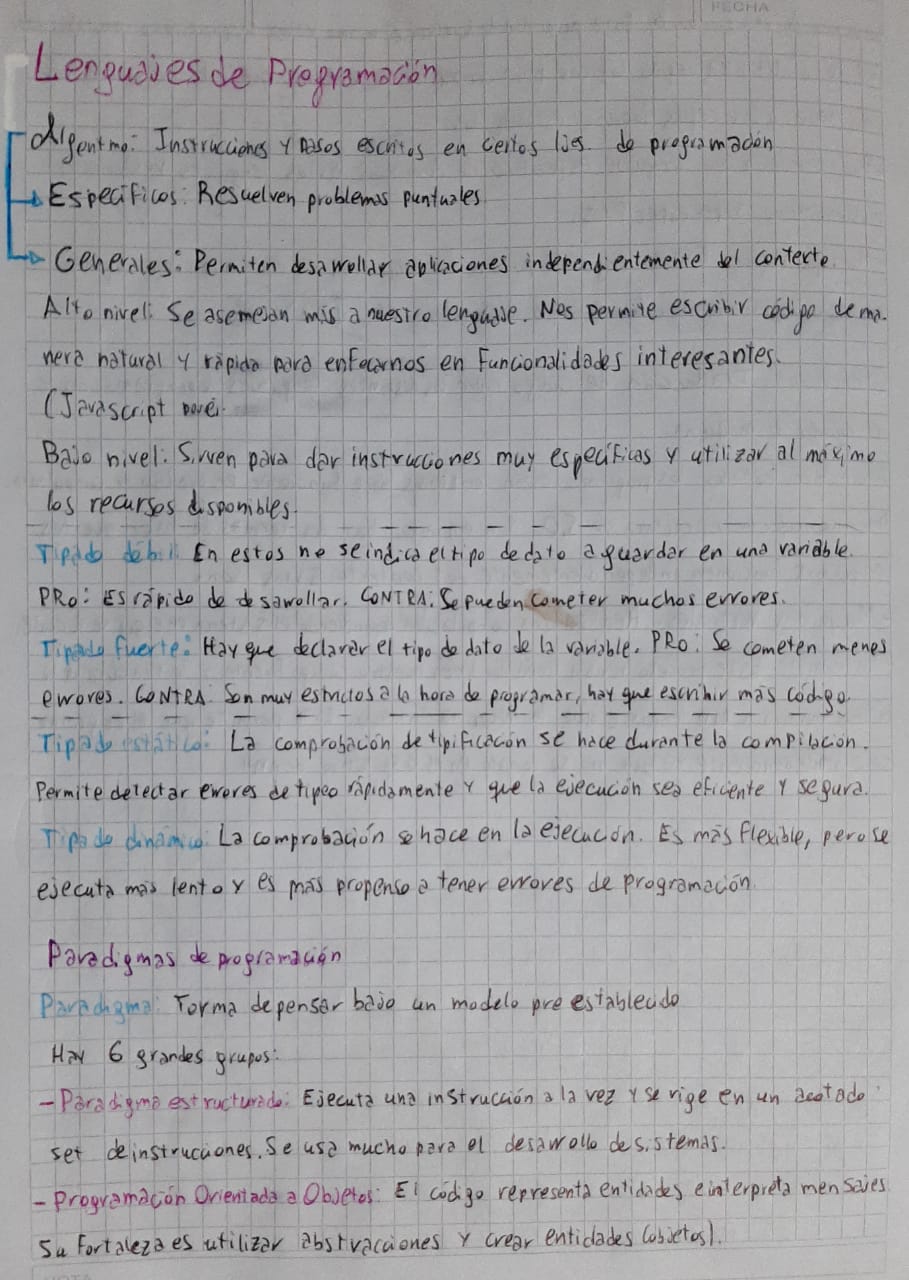 FECHA
Lenguajes de Programación
Algoritmo: Instrucciones y pasos escritos en ciertos ljes. de programación
Específicos: Resuelven problemas puntuales
Generales: Permiten desarrollar aplicaciones independientemente del contexto.
Alto nivel: Se asemejan más a nuestro lenguaje. Nos permite escribir código de ma-
nera natural y rápida para enfocarnos en Funcionalidades interesantes.
(Javascript
Bajo nivel: Sirven para dar instrucciones muy específicas y utilizar al máximo
los recursos disponibles.
Tipado débil: En estos no se indica el tipo de dato a guardar en una variable.
PRO: Es rápido de desarrollar. CONTRA: Se pueden cometer muchos errores.
Tipado fuerte: Hay que declarar el tipo de dato de la variable. PRO: Se cometen menos
errores. CONTRA: Son muy estrictos a la hora de programar, hay que escribir más código.
Tipado estático: La comprobación de tipificación se hace durante la compilación.
Permite detectar errores de tipeo rápidamente y que la ejecución sea eficiente y segura.
Tipado dinámico: La comprobación se hace en la ejecución. Es más flexible, pero se
ejecuta más lento y es más propenso a tener errores de programación.
Paradigmas de programación
Paradigma: Forma de pensar bajo un modelo pre establecido
Hay 6 grandes grupos:
- Paradigma estructurado: Ejecuta una instrucción a la vez y se rige en un acotado
set de instrucciones. Se usa mucho para el desarrollo de sistemas.
- Programación Orientada a Objetos: El código representa entidades e interpreta mensajes
Su Fortaleza es utilizar abstracciones y crear entidades (objetos).